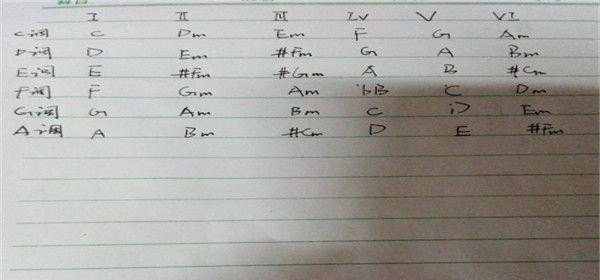 I II III IV V VI
C调 C Dm Em F G Am
D调 D Em #Fm G A Bm
E调 E #Fm #Gm A B #Cm
F调 F Gm Am bB C Dm
G调 G Am Bm C D Em
A调 A Bm #Cm D E #Fm